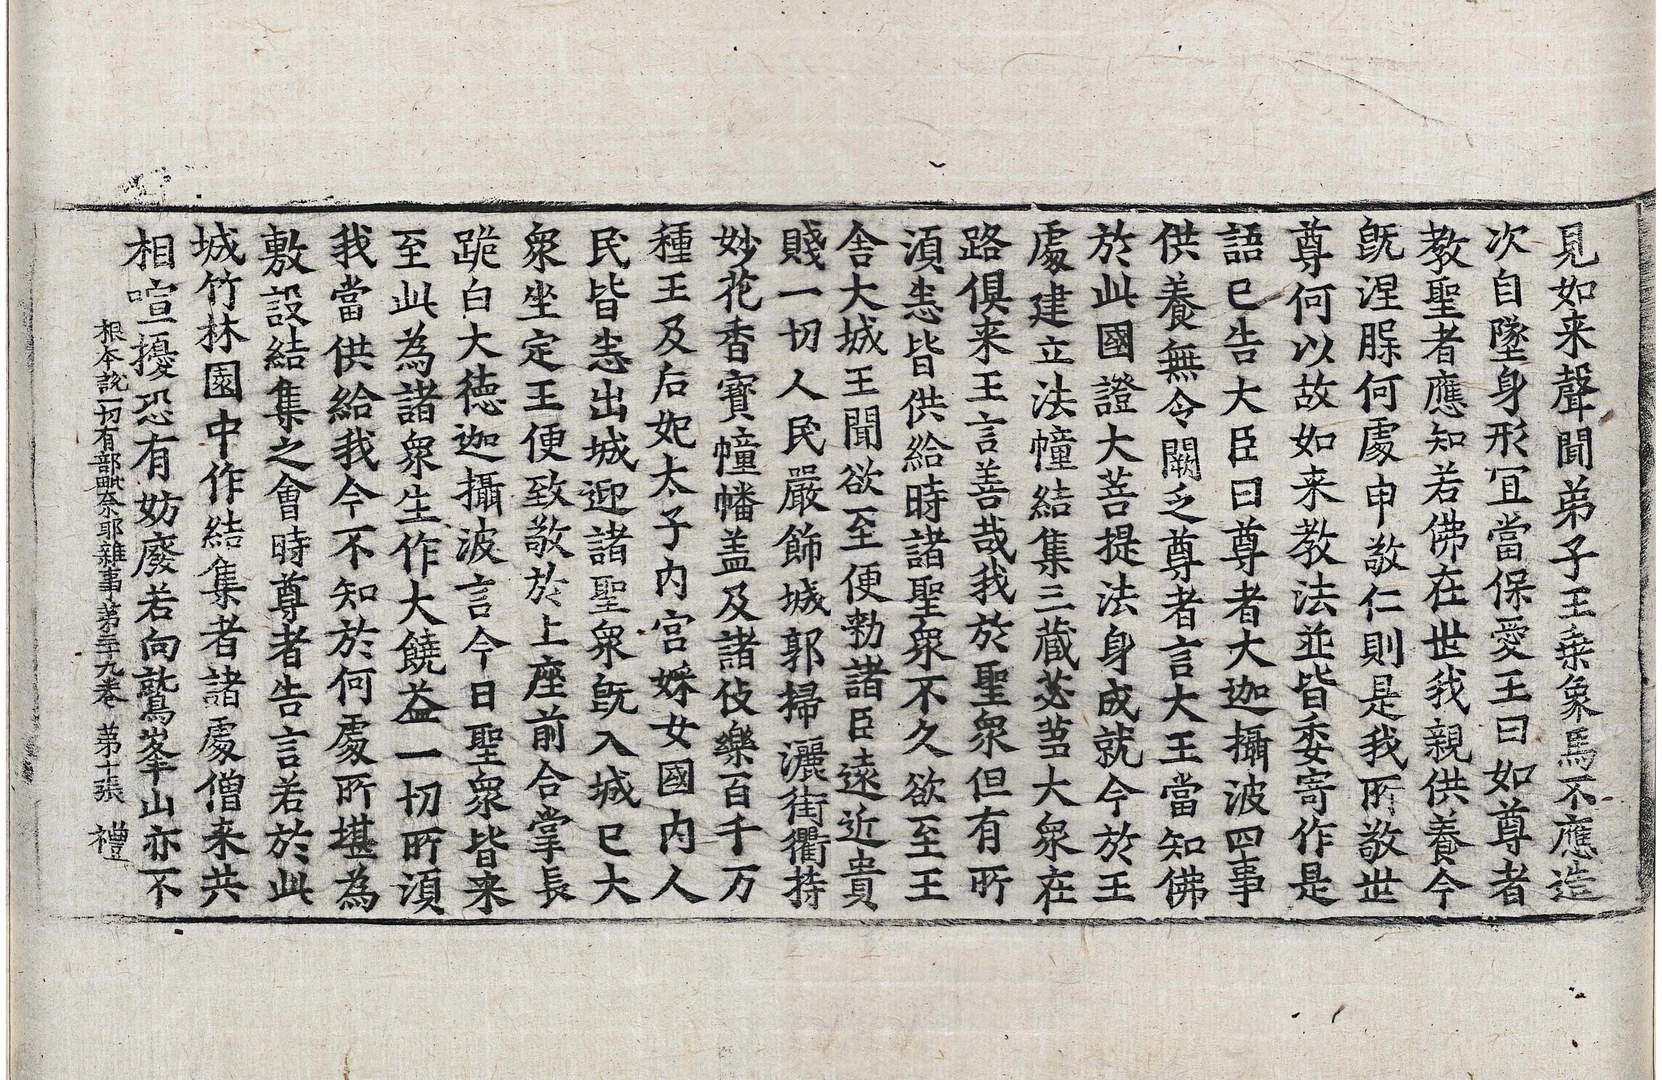 見如来聲聞弟子王乗象馬不應造
次自墜身形冝當保愛王曰如尊者
教聖者應知若佛在世我親供養今
旣涅脲何處申敬仁則是我所敬世
尊何以故如来教法並皆委寄作是
語已告大臣曰尊者大迦攝波四事
供養無令闕乏尊者言大王當知佛
於此國證大菩提法身成就今於王
處建立法幢結集三藏苾蒭大衆在
路俱来王言善哉我於聖衆但有所
湏悉皆供給時諸聖衆不久欲至王
舍大城王聞欲至便勑諸臣遠近貴
賤一切人民嚴飾城郭掃灑街衢持
妙花香寳幢幡盖及諸伎樂百千万
種王及后妃太子內宮婇女國內人
民皆悉出城迎諸聖衆旣入城已大
衆坐定王便致敬於上座前合掌長
跪白大德迦攝波言今日聖衆皆来
至此為諸衆生作大饒益一切所湏
我當供給我今不知於何處所堪為
敷設結集之會時尊者告言若於此
城竹林園中作結集者諸處僧来共
相喧擾恐有妨廢若向鷲峯山亦不
根本說一切有部毗奈耶雜事第三十九卷 第十張 禮